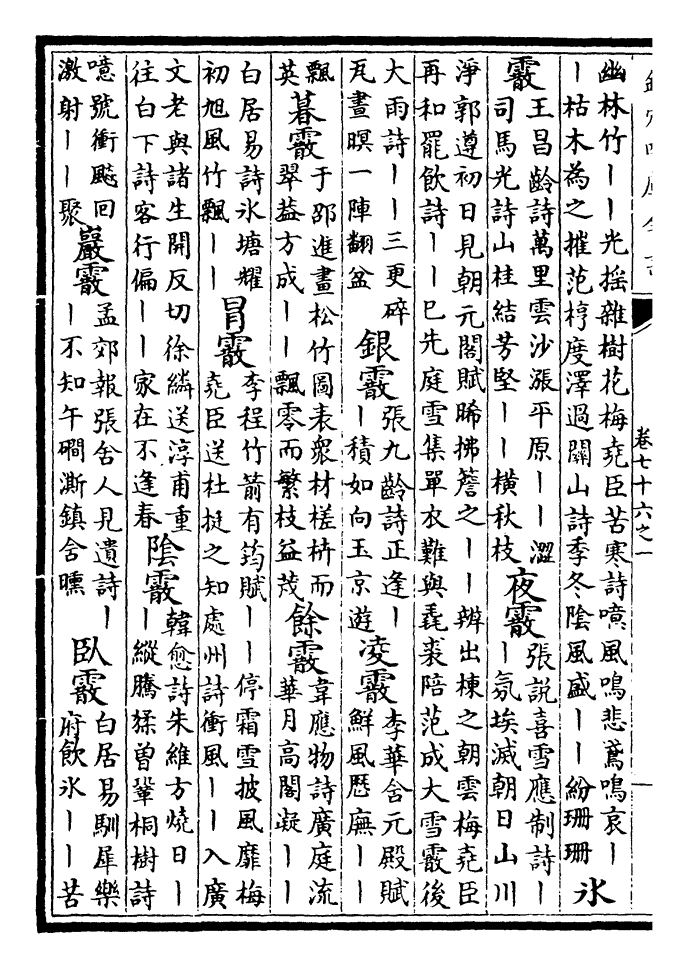 卷七十六之一
幽林竹——光揺雜樹花梅堯臣苦寒詩噫風鳴悲鳶鳴哀—
—枯木為之摧范梈度澤過關山詩季冬陰風盛——紛珊珊
氷
霰
王昌齡詩萬里雲沙漲平原——澀
司馬光詩山桂結芳堅——横秋枝
夜霰
張說喜雪應制詩—
—氛埃滅朝日山川
淨郭遵初日見朝元閣賦晞拂簷之——辨出棟之朝雲梅堯臣
再和罷飲詩——已先庭雪集單衣難與毳裘陪范成大雪霰後
大雨詩——三更碎
瓦晝暝一陣翻盆
銀霰
張九齡詩正逢—
—積如向玉京遊
凌霰
李華含元殿賦
鮮風歷廡——
飄
英
暮霰
于邵進畫松竹圖表衆材槎枿而
翠益方成——飄零而繁枝益茂
餘霰
韋應物詩廣庭流
華月高閣凝——
白居易詩氷塘耀
初旭風竹飄——
冒霰
李程竹箭有筠賦——停霜雪披風靡梅
堯臣送杜挺之知處州詩衝風——入廣
文老與諸生開反切徐鏻送淳甫重
往白下詩客行偏——家在不逢春
陰霰
韓愈詩朱維方燒日—
—縱騰猱曾鞏桐樹詩
噫號衝飈回
激射——聚
巖霰
孟郊報張舍人見遺詩—
—不知午磵澌鎮含曛
臥霰
白居易馴犀樂
府飲氷——苦